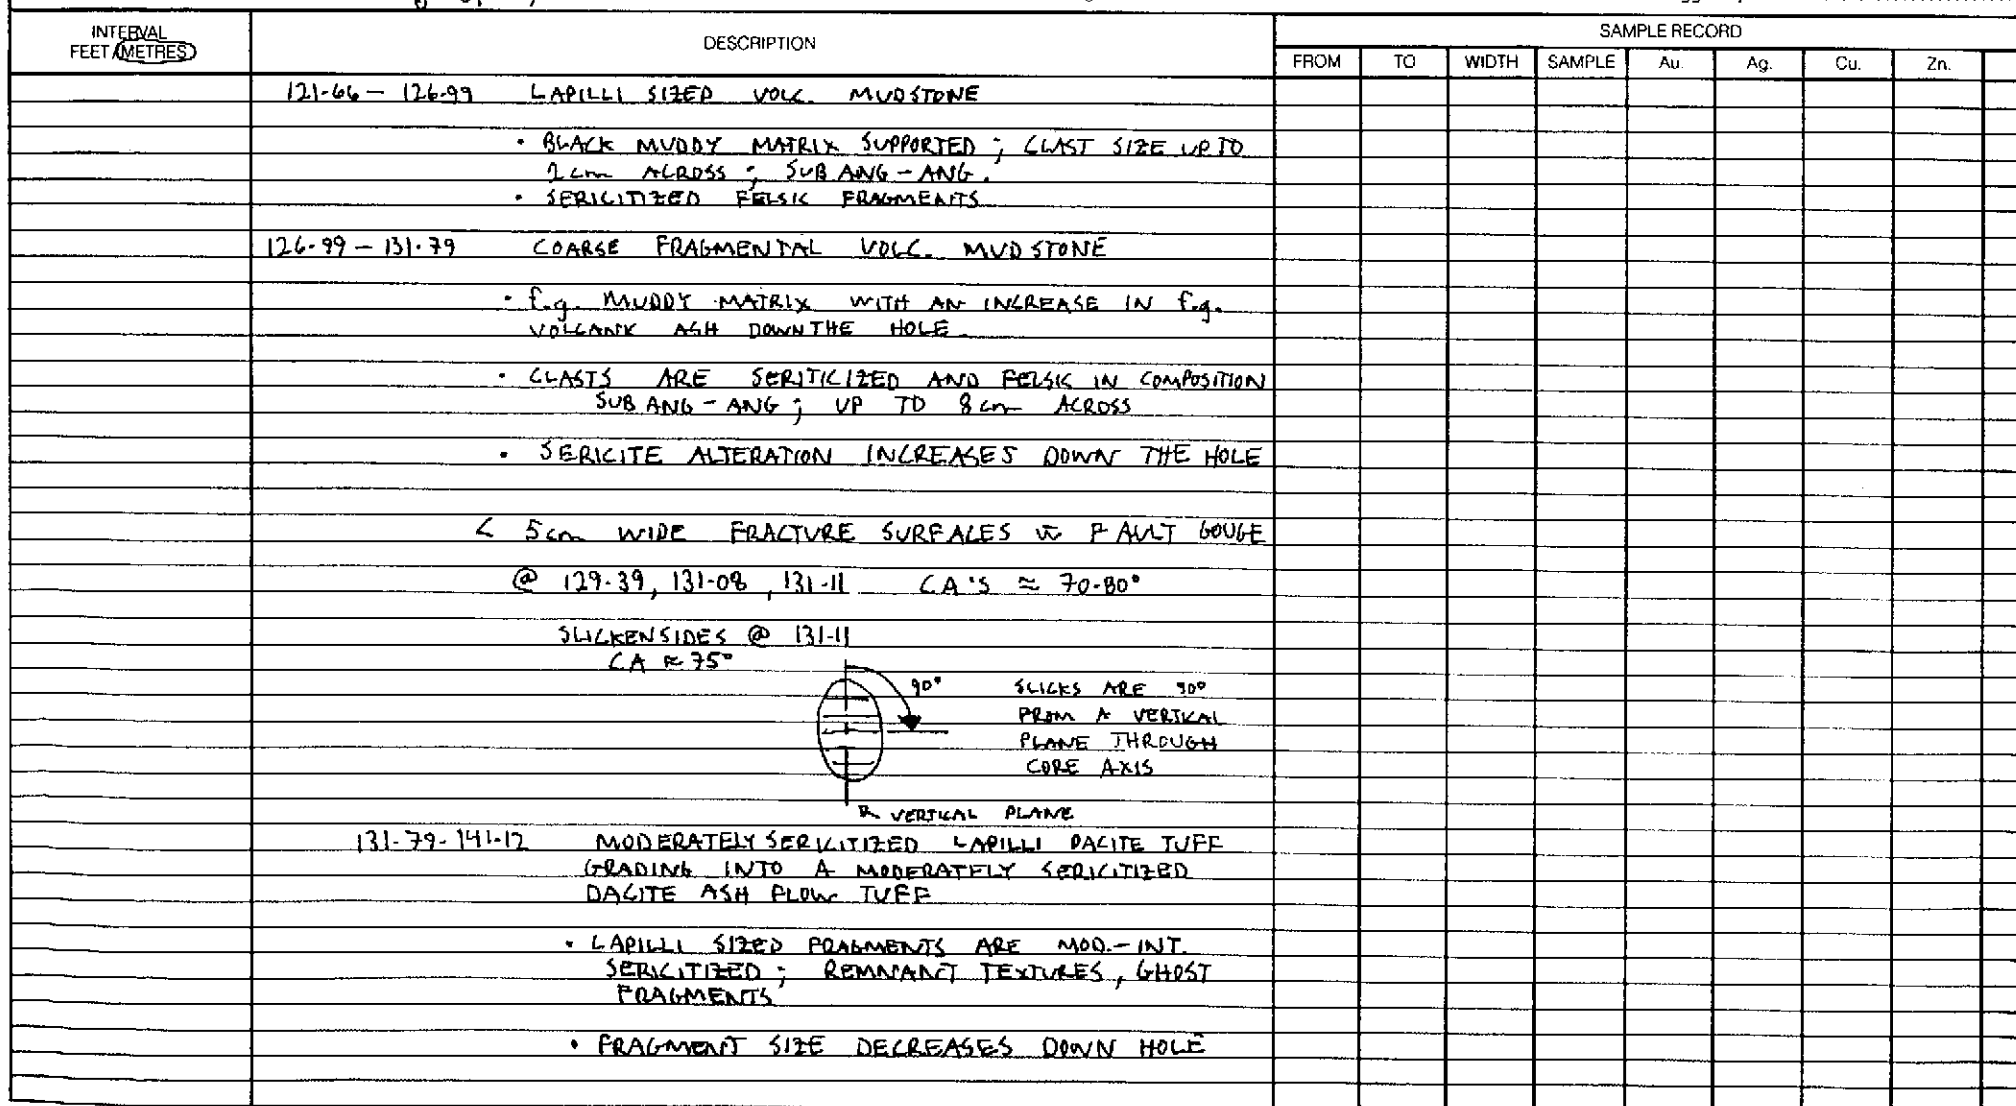 INTERVAL
FEET/METRES
DESCRIPTION
SAMPLE RECORD
FROM TO WIDTH SAMPLE Au. Ag. Cu. Zn.
121-66 - 126-99 LAPILLI SIZED VOLC. MUDSTONE
• BLACK MUDDY MATRIX SUPPORTED ; CLAST SIZE UP TO
2cm ACROSS ; SUB ANG - ANG.
• SERICITIZED FELSIC FRAGMENTS
126-99 - 131-79 COARSE FRAGMENTAL VOLC. MUDSTONE
• f.g. MUDDY MATRIX WITH AN INCREASE IN f.g.
VOLCANIC ASH DOWN THE HOLE.
• CLASTS ARE SERITICIZED AND FELSIC IN COMPOSITION
SUB ANG - ANG ; UP TO 8cm ACROSS
• SERICITE ALTERATION INCREASES DOWN THE HOLE
< 5cm WIDE FRACTURE SURFACES w FAULT GOUGE
@ 129-39, 131-08, 131-11 CA'S ≈ 70-80°
SLICKENSIDES @ 131-11
CA ≈ 75°
90° SLICKS ARE 90°
FROM A VERTICAL
PLANE THROUGH
CORE AXIS
VERTICAL PLANE
131-79-141-12 MODERATELY SERICITIZED LAPILLI DACITE TUFF
GRADING INTO A MODERATELY SERICITIZED
DACITE ASH FLOW TUFF
• LAPILLI SIZED FRAGMENTS ARE MOD.-INT.
SERICITIZED ; REMNANT TEXTURES, GHOST
FRAGMENTS
• FRAGMENT SIZE DECREASES DOWN HOLE